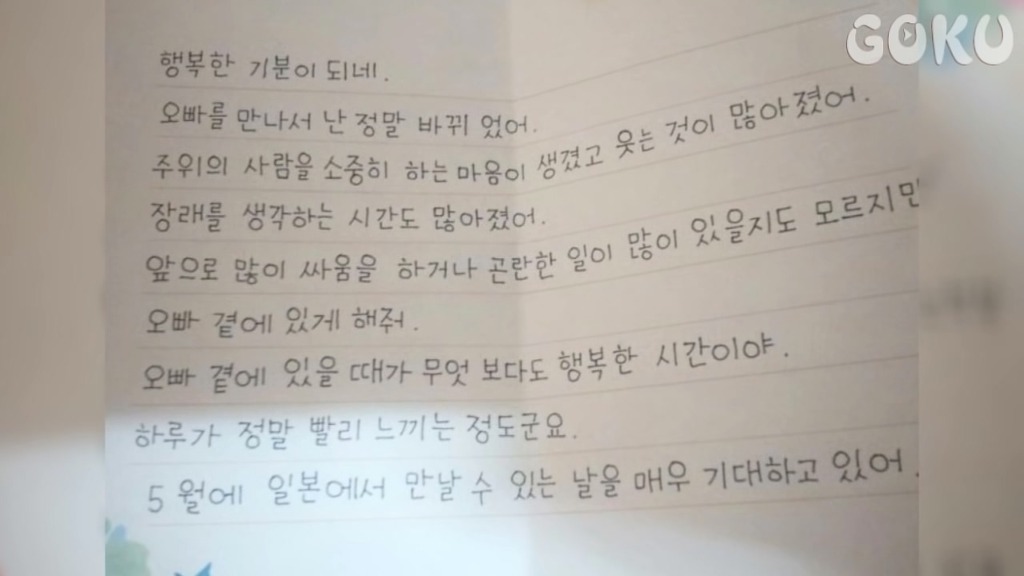 GOKU
행복한 기분이 되네.
오빠를 만나서 난 정말 바뀌 었어.
주위의 사람을 소중히 하는 마음이 생겼고 웃는 것이 많아졌어.
장래를 생각하는 시간도 많아졌어.
앞으로 많이 싸움을 하거나 곤란한 일이 많이 있을지도 모르지만
오빠 곁에 있게 해줘.
오빠 곁에 있을 때가 무엇 보다도 행복한 시간이야.
하루가 정말 빨리 느끼는 정도군요.
5월에 일본에서 만날 수 있는 날을 매우 기대하고 있어.